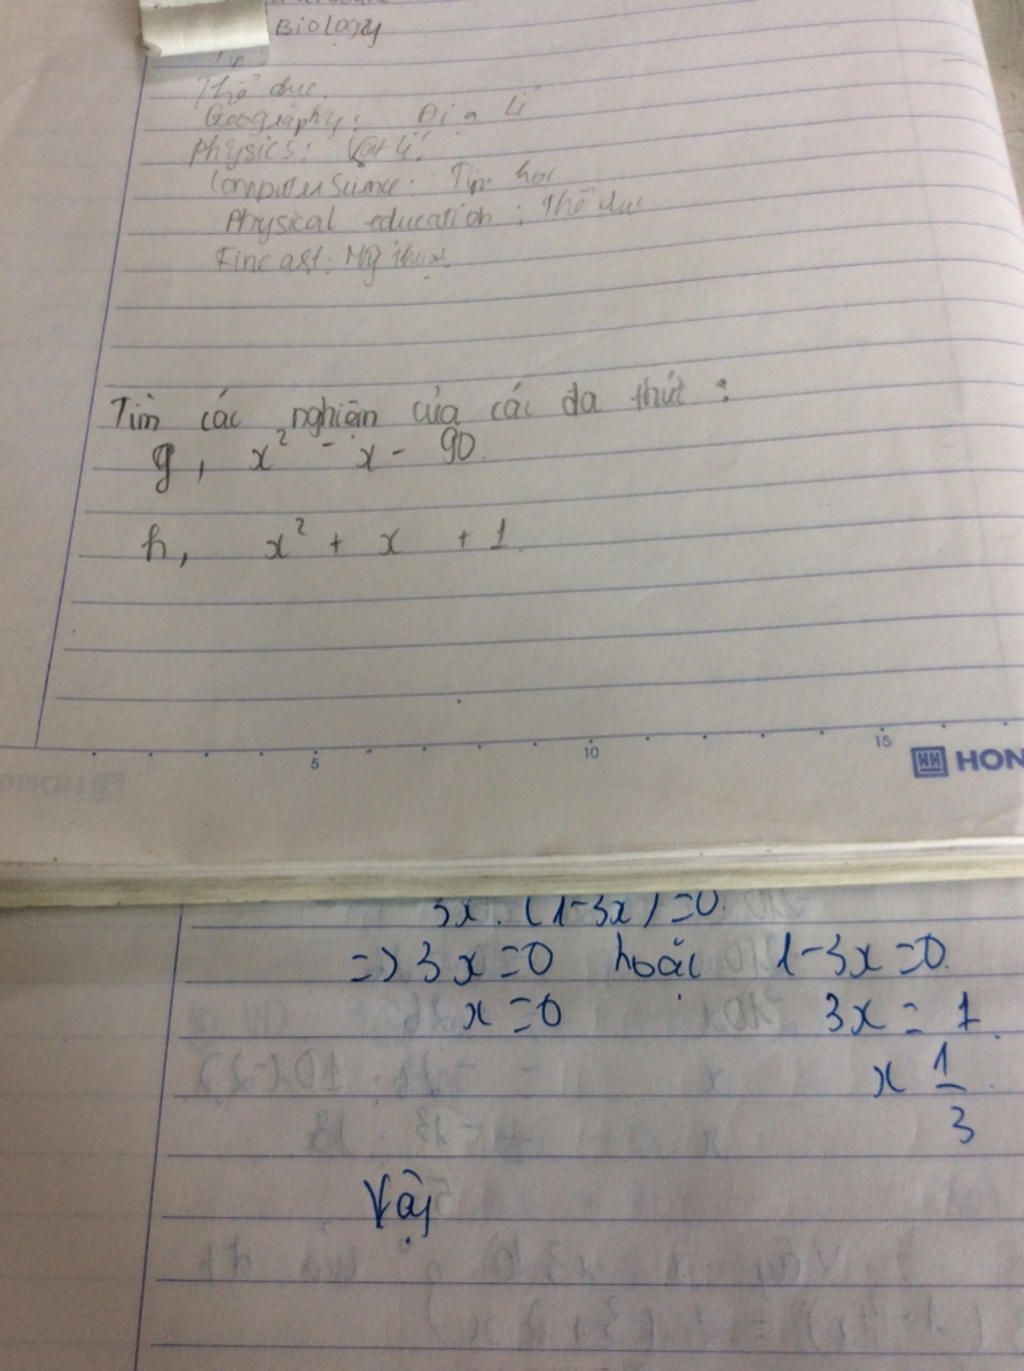 Biology
Thể dục
Geography: Địa lí
Physics: Vật lí
Computer Science: Tin học
Physical education: Thể dục
Fine ast: Mỹ thuật
Tìm các nghiệm của các đa thức :
g, x² - x - 90.
h, x² + x + 1.
5 10 15
HON
3x . (1-3x) =0.
=> 3x =0 hoặc 1-3x =0.
x =0 3x = 1
x 1/3.
Vậy